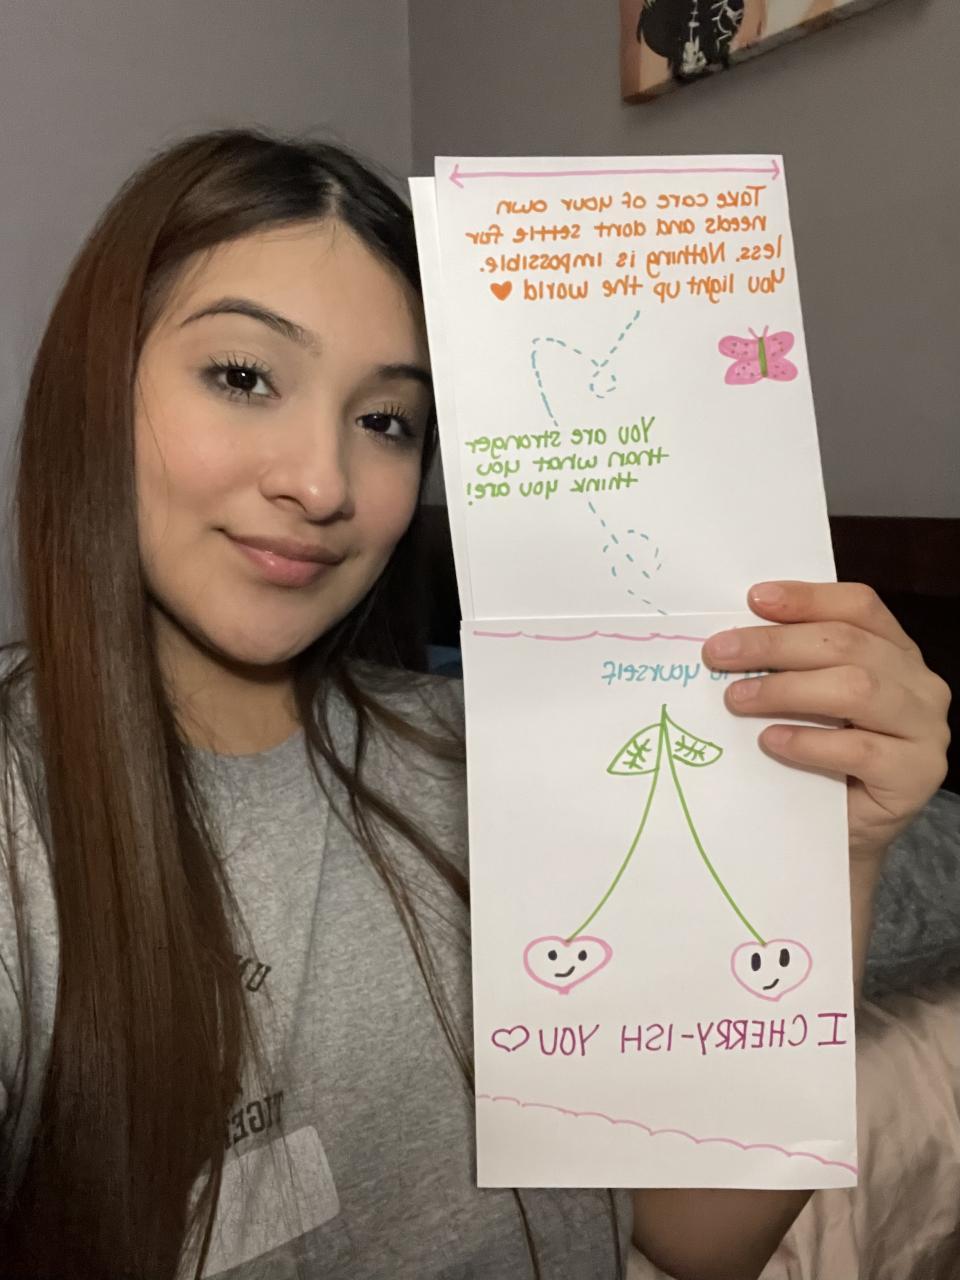 Take care of your own
needs and dont settle for
less. Nothing is impossible.
You light up the world ♥
You are stronger
than what you
think you are!
yourself
I CHERRY-ISH YOU ♡